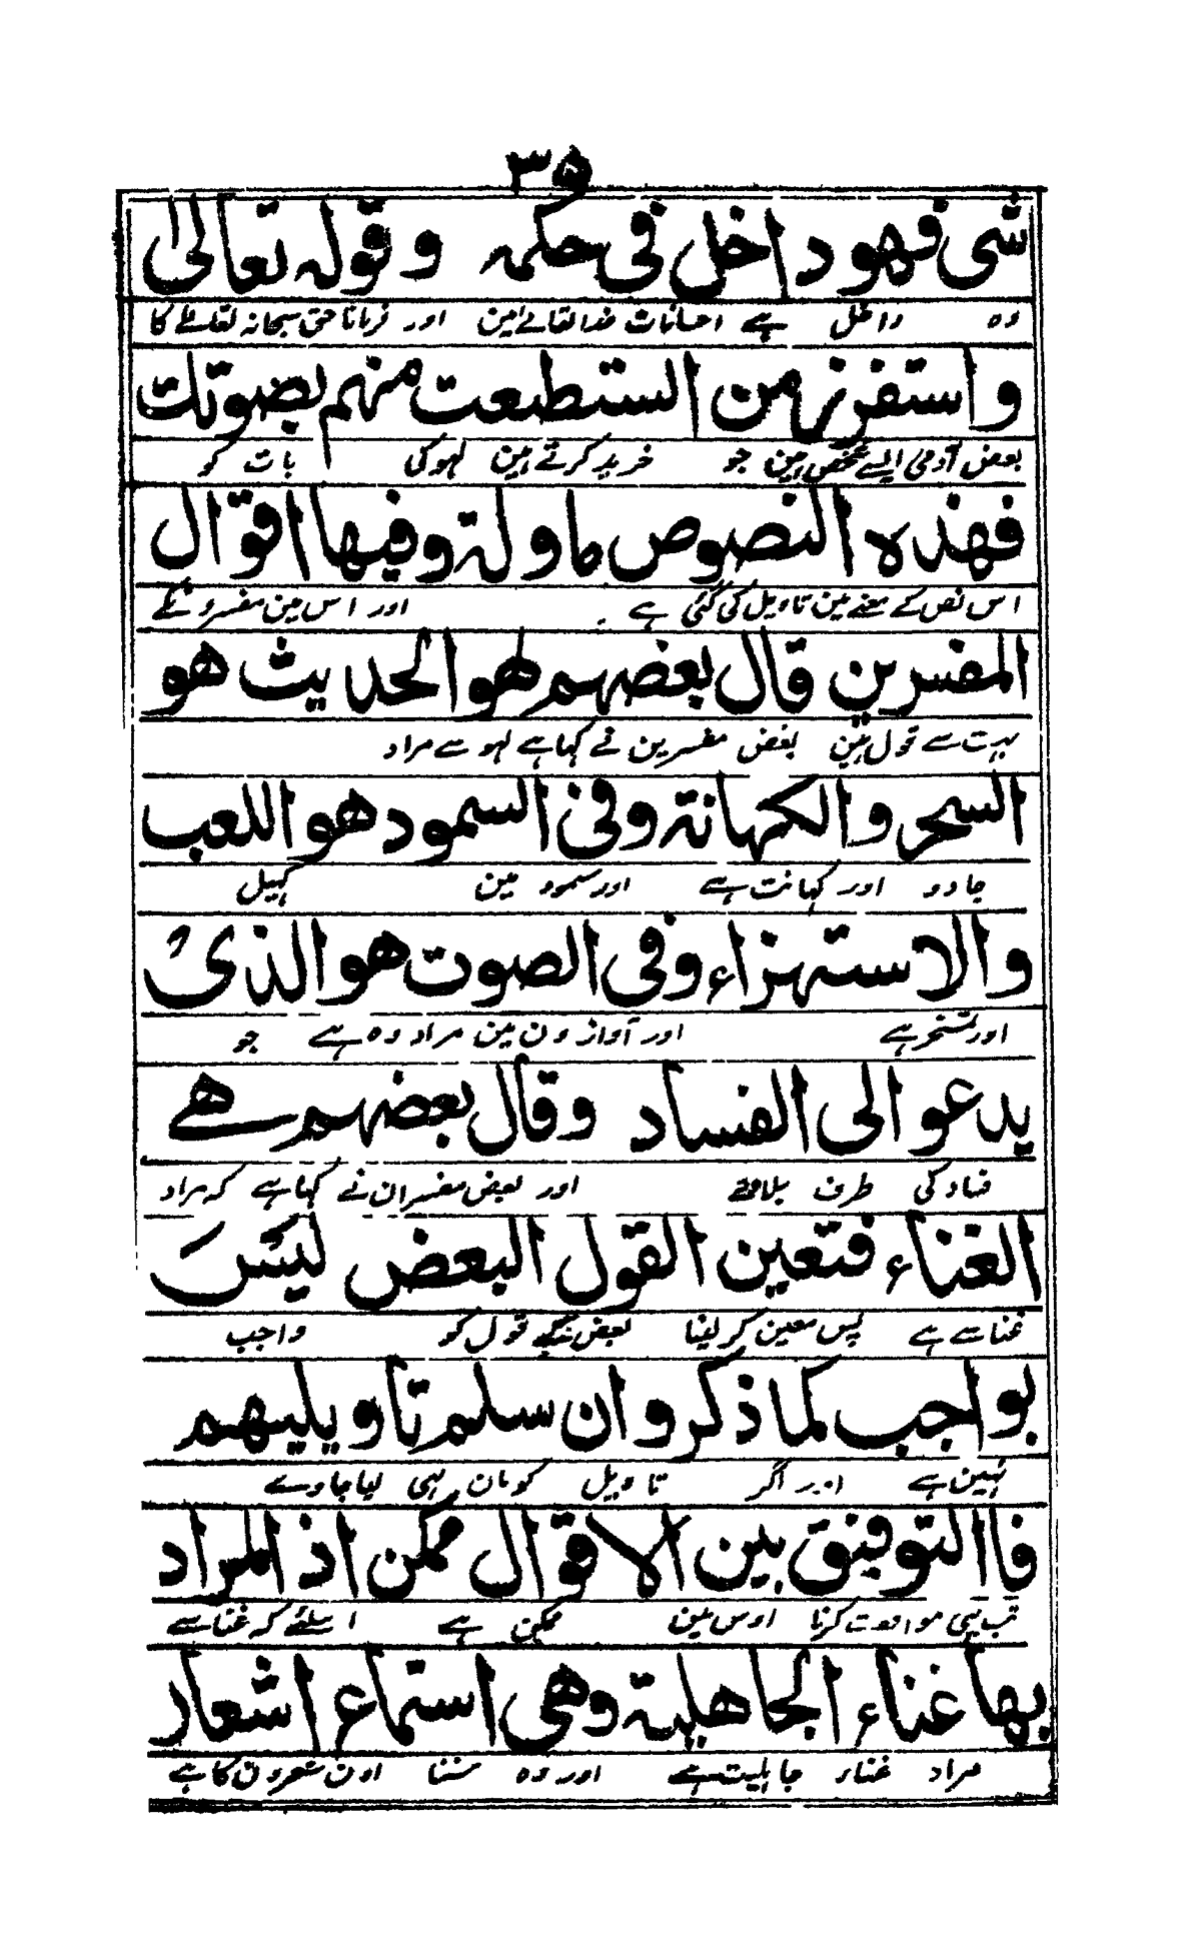 ٣٥
شی فهو داخل فی حکمہ و قولہ تعالیٰ
وہ داخل ہے احسانات خدا تعالے مین اور فرمانا حق سبحانہ تعالےٰ کا
و استفرز من الستطعت منهم بصوتك
بعض آدمی ایسے شخص ہین جو خرید کرتے ہین لہو کی بات کو
فهذه النصوص ماولة وفيها اقوال
اس نص کے معنے مین تاویل کی گئی ہے اور اس مین مفسرونکے
المفسرين قال بعضهم لهو الحديث هو
بہت سے قول ہین بعض مفسرین نے کہا ہے لہو سے مراد
السحر والكهانة وفی السمود هو اللعب
جادو اور کہانت ہے اور سمود مین کہیل
والاستهزاء وفی الصوت هو الذی
اور تمسخر ہے اور آواز ون مین مراد وہ ہے جو
يدعو الى الفساد وقال بعضهم هے
فساد کی طرف بلاوے اور بعض مفسران نے کہا ہے کہ مراد
الغناء فتعين القول البعض ليس
غنا سے ہے پس معین کر لینا بعض کے قول کو واجب
بواجب كما ذكر وان سلم تاويلهم
نہین ہے اور اگر تاویل کو مان بہی لیا جاوے
فاالتوفيق بين الاقوال ممكن اذ المراد
تب بہی موافقت کرنا اوس مین ممکن ہے اسلئے کہ غنا سے
بها غناء الجاهلية وهی استماع اشعار
مراد غناء جاہلیت ہے اور وہ سننا اون شعرون کا ہے